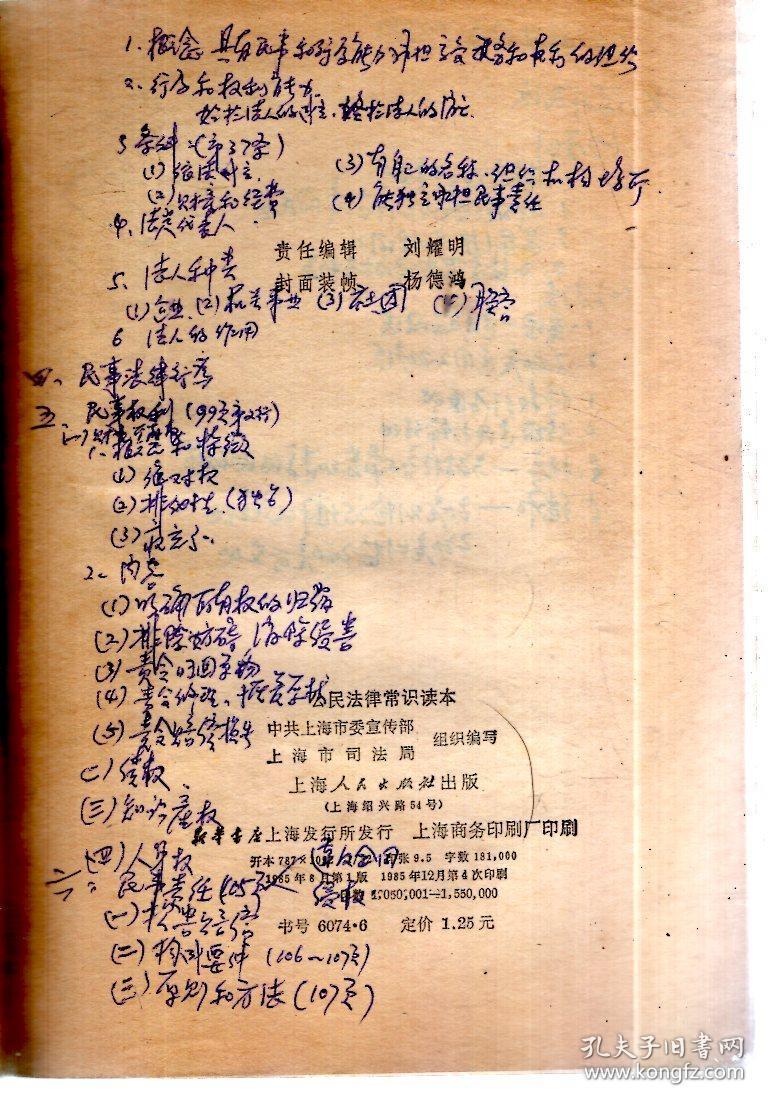 1. 概念 具有民事和行为能力
2. 行为和权利能力
始于法人的成立,终于法人的消亡
3 条件:(第37条)
(1) 依法成立
(3) 有自己的名称、组织机构和场所
(2) 财产和经费
(4) 能独立承担民事责任
4. 法定代表人
责任编辑 刘耀明
5. 法人种类
封面装帧 杨德鸿
(1) 企业 (2) 机关事业 (3) 社团
6 法人的作用
四、民事法律行为
五、民事权利 (99页第2行)
1. 概念和特徵
(1) 绝对权
(2) 排他性
(3)
2. 内容
(1) 所有权的归属
(2) 排除妨碍 消除侵害
(3) 责令归回原物
(4) 责令修理、恢复原状
公民法律常识读本
(5) 责令赔偿损失
中共上海市委宣传部
上海市司法局
组织编写
(二) 债权
上海人民出版社出版
(上海绍兴路54号)
(三) 知识产权
新华书店上海发行所发行 上海商务印刷厂印刷
(四) 人身权
违反合同
开本 787×10 张 9.5 字数 181,000
六、民事责任
侵权
1985年6月第1版 1985年12月第4次印刷
印数 1,050,001—1,550,000
(一)
书号 6074·6 定价 1.25 元
(二) 构成要件 (106~107页)
(三) 原则和方法 (107页)
孔夫子旧书网
www.kongfz.com